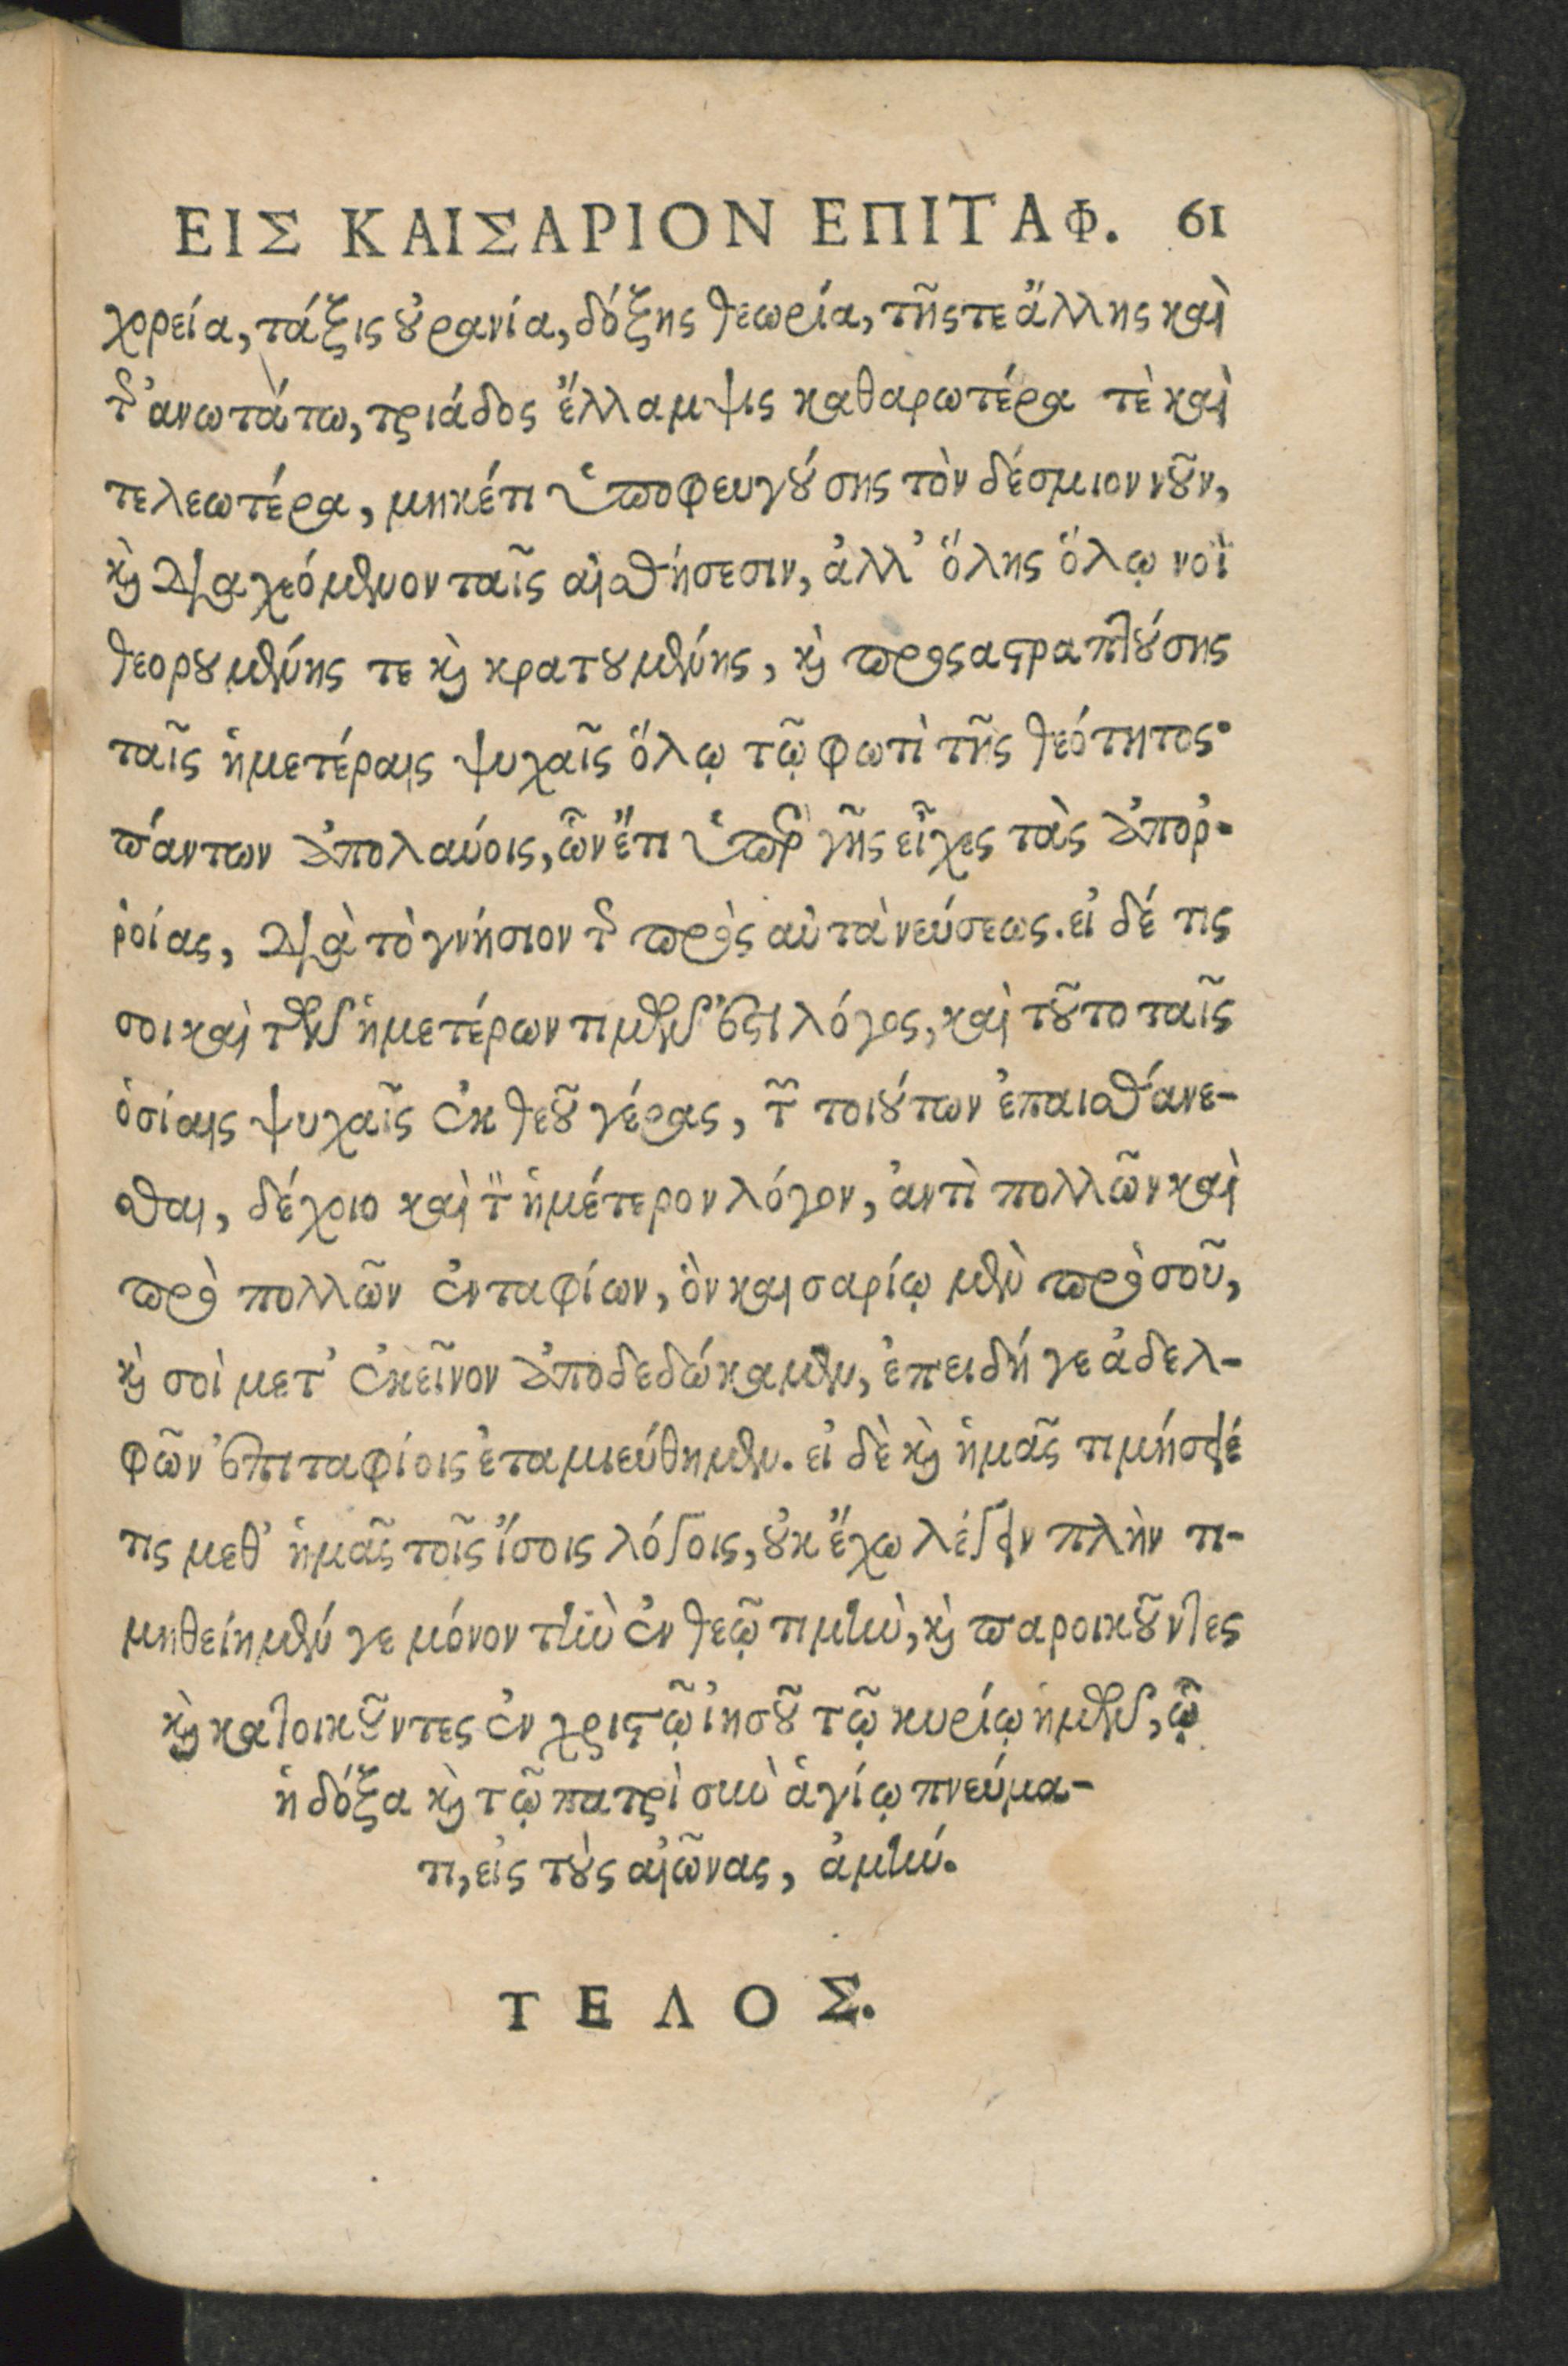 ΕΙΣ ΚΑΙΣΑΡΙΟΝ ΕΠΙΤΑΦ. 61
χορεία, τάξις οὐρανία, δόξης θεωρία, τῆς τε ἄλλης καὶ
τῆς ἀνωτάτω, τριάδος ἔλλαμψις καθαρωτέρα τὲ καὶ
τελεωτέρα, μηκέτι ὑποφευγούσης τὸν δέσμιον νοῦν,
καὶ διαχεόμενον ταῖς αἰσθήσεσιν, ἀλλ' ὅλης ὅλῳ νοῒ
θεορουμένης τε καὶ κρατουμένης, καὶ προσαστραπτούσης
ταῖς ἡμετέραις ψυχαῖς ὅλῳ τῷ φωτὶ τῆς θεότητος·
πάντων ἀπολαύοις, ὧν ἔτι ὑπὲρ γῆς εἶχες τὰς ἀποῤ-
ῥοίας, διὰ τὸ γνήσιον τῆς πρὸς αὐτὰ νεύσεως. εἰ δέ τις
σοι καὶ τῶν ἡμετέρων τιμῶν ἐστὶ λόγος, καὶ τοῦτο ταῖς
ὁσίαις ψυχαῖς ἐκ θεοῦ γέρας, τῶν τοιούτων ἐπαισθάνε-
σθαι, δέχοιο καὶ τὸν ἡμέτερον λόγον, ἀντὶ πολλῶν καὶ
πρὸ πολλῶν ἐνταφίων, ὃν καισαρίῳ μὲν πρὸ σοῦ,
καὶ σοὶ μετ' ἐκεῖνον ἀποδεδώκαμεν, ἐπειδή γε ἀδελ-
φῶν ἐπιταφίοις ἐταμιεύθημεν. εἰ δὲ καὶ ἡμᾶς τιμήσειέ
τις μεθ' ἡμᾶς τοῖς ἴσοις λόγοις, οὐκ ἔχω λέγειν πλὴν τι-
μηθείημέν γε μόνον τὴν ἐν θεῷ τιμὴν, καὶ παροικοῦντες
καὶ κατοικοῦντες ἐν χριστῷ ἰησοῦ τῷ κυρίῳ ἡμῶν, ᾧ
ἡ δόξα καὶ τῷ πατρὶ σὺν ἁγίῳ πνεύμα-
τι, εἰς τοὺς αἰῶνας, ἀμήν.
ΤΕΛΟΣ.